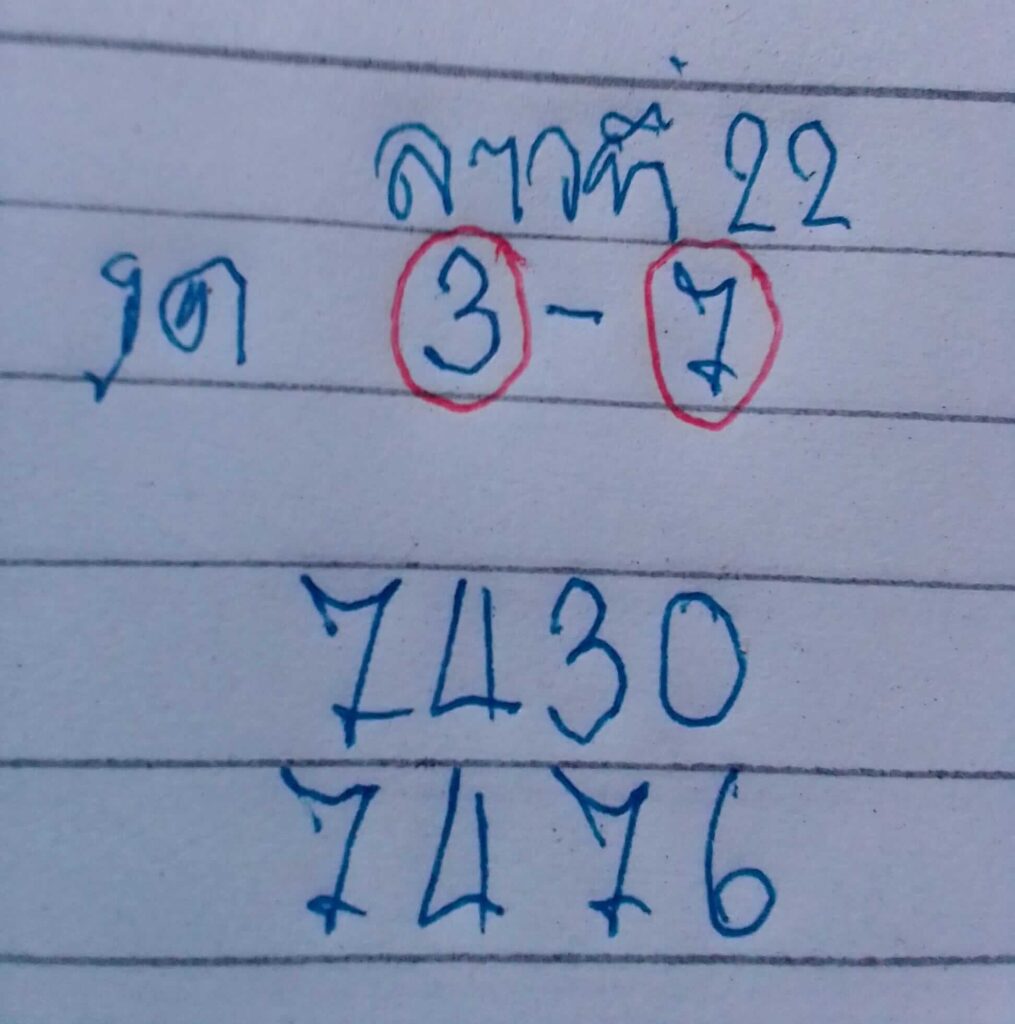 ลาวที่ 22
รูด 3 - 7
7430
7476